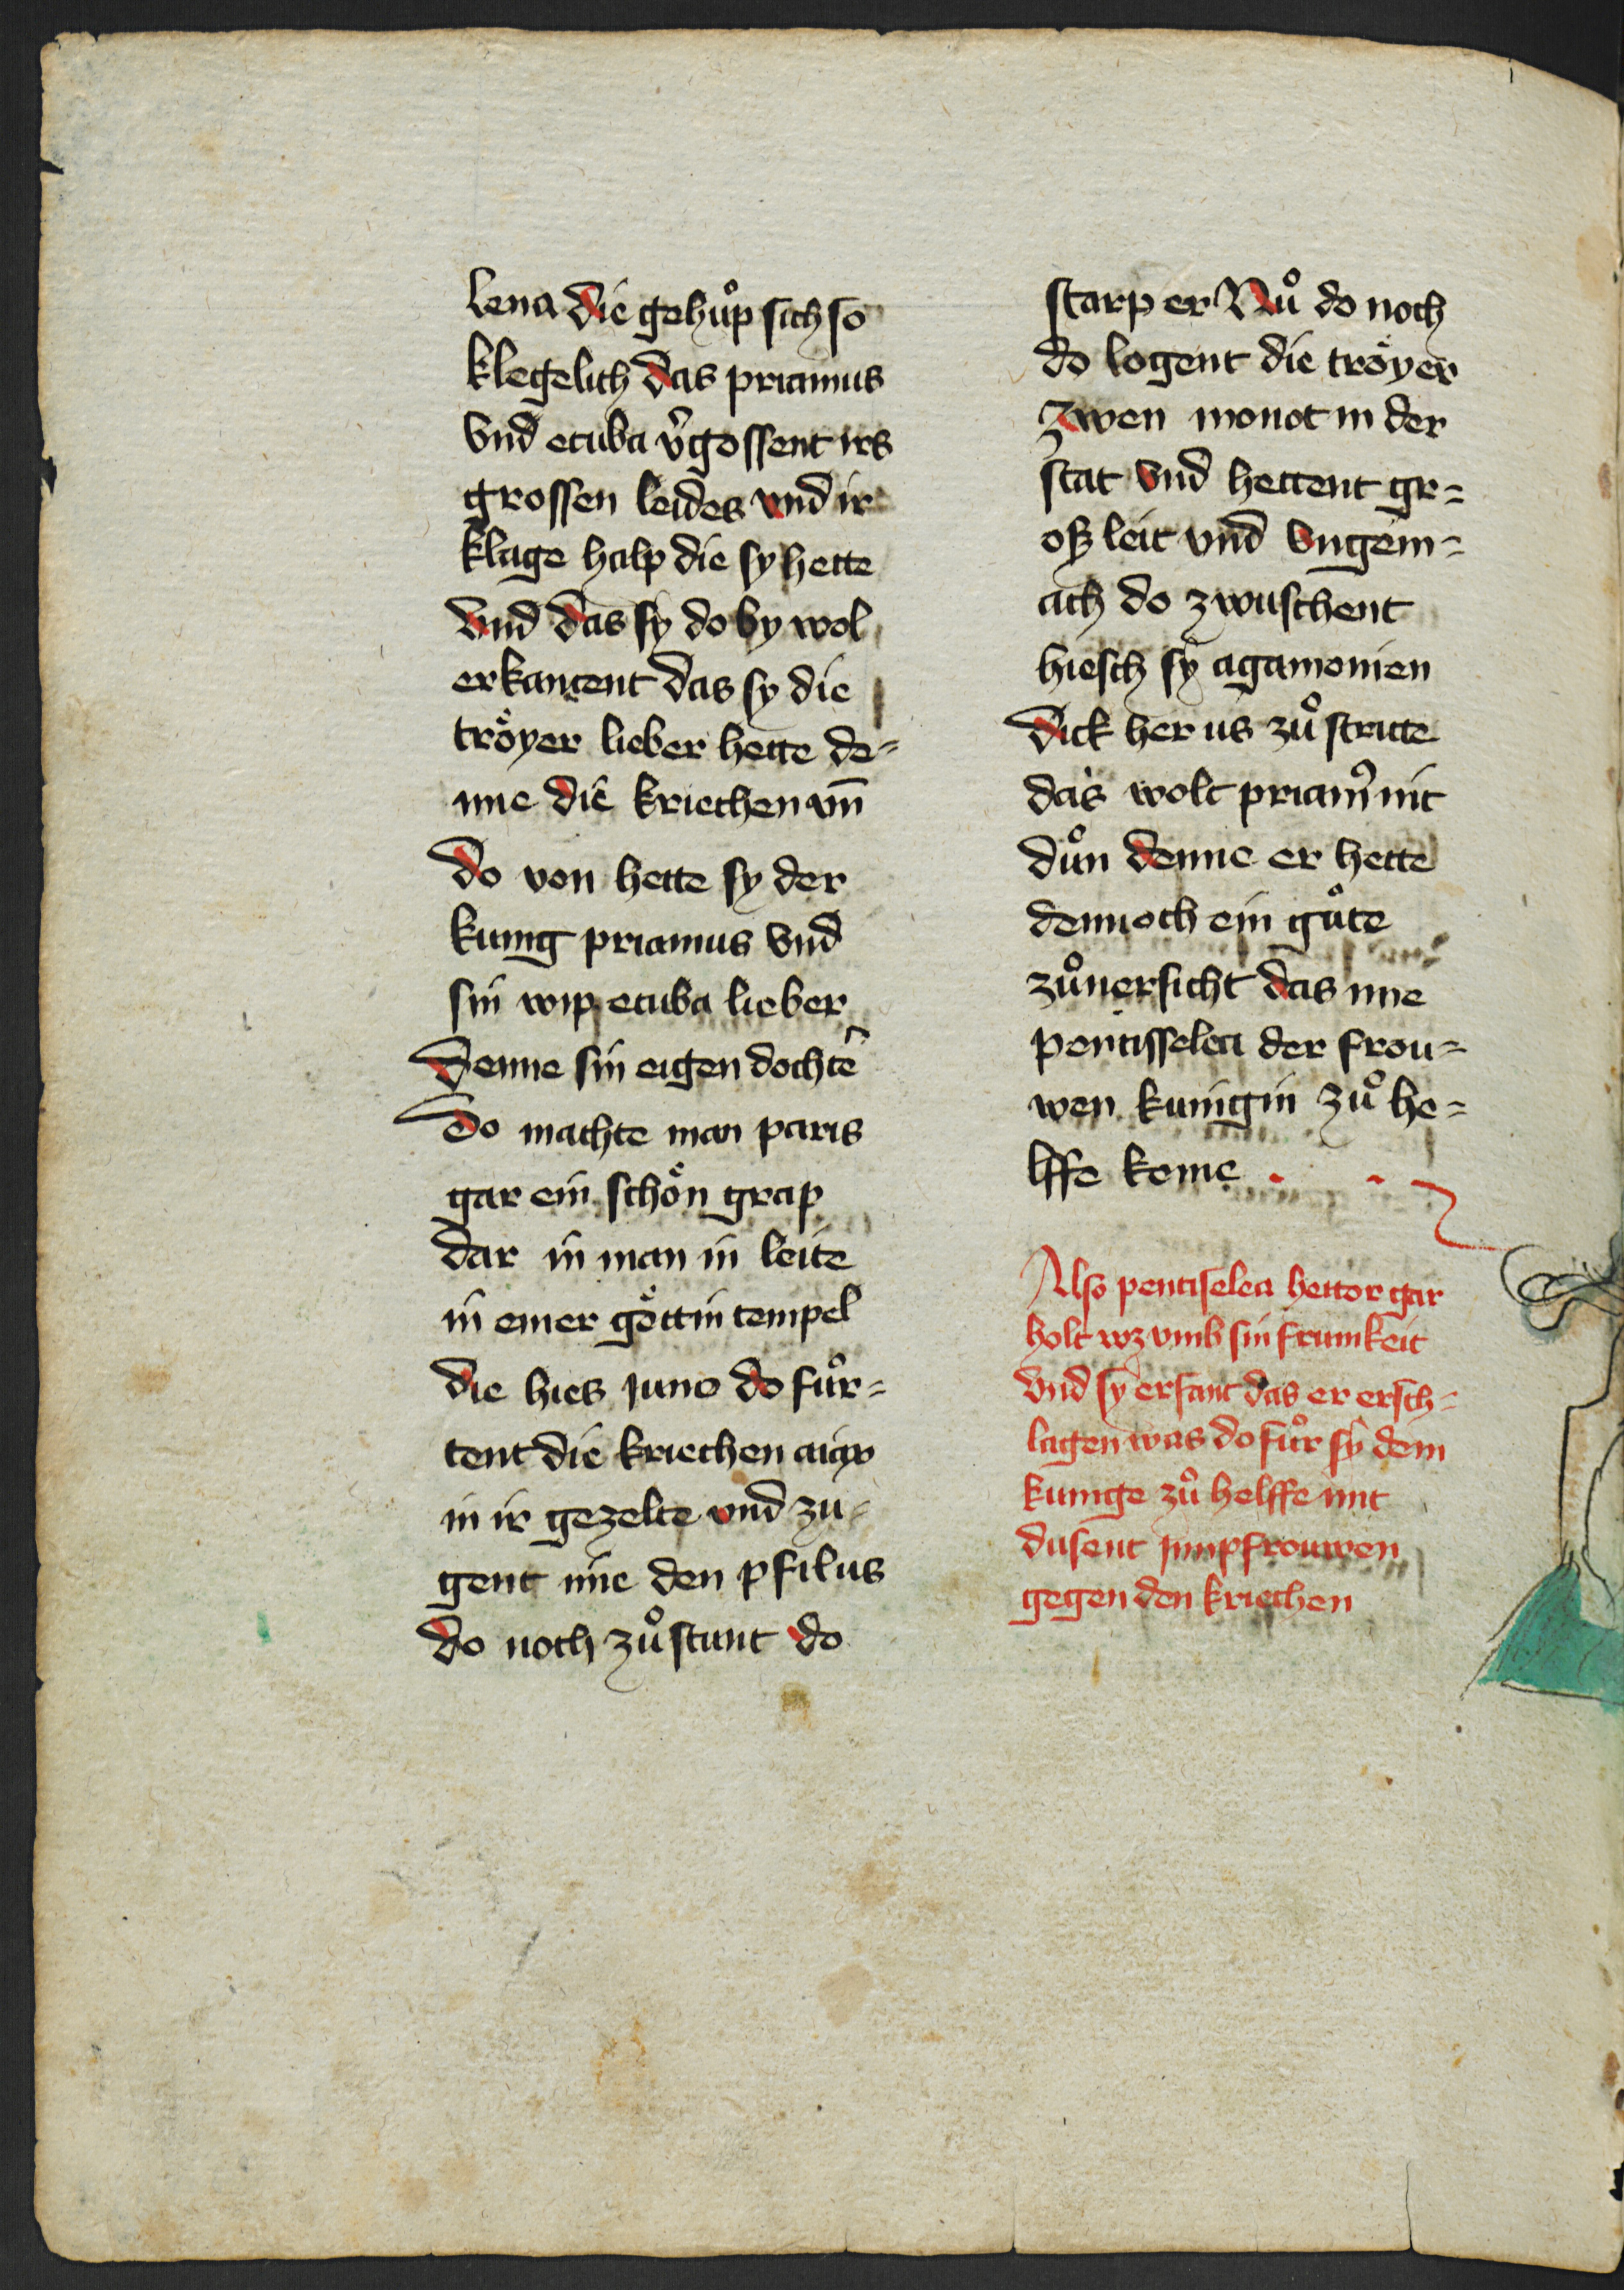 lena die gehuͦp sich so
klegelich das priamus
vnd ecuba v̉gossent irs
grossen leides vnd ir
klage halp die sy hette
vnd das sy do by wol
erkantent das sy die
troͤyer lieber hette de=
nne die kriechen vn̄
do von hette sy der
kunig priamus vnd
sin wip ecuba lieber
denne sin eigen dochte͛
do machte man paris
gar ein schoͤn grap
dar in man in leite
in einer goͤttin tempel
die hies juno do fuͦr=
tent die kriechen aiax
in ir gezelte vnd zu=
gent ime den pfil us
do noch zuͦ stunt do
starp er Nuͦ do noch
do logent die troͤyer
zwen monot in der
stat vnd hettent gr=
oß leit vnd vngem=
ach do zwuschent
hiesch sy agamonien
dick her us zuͦ stritte
das wolt priamꝰ nit
duͦn denne er hette
dennoch ein guͦte
zuͦuersicht das ime
pentisselea der frou=
wen kunigin zuͦ he=
lffe keme
Also pentiselea hettor gar
holt wz vmb sin frumkeit
vnd sy erfant das er ersch=
lagen was do fuͦr sy dem
kunige zuͦ helffe mit
dusent junpfrouwen
gegen den kriechen